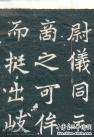 尉儀同三
啇之可侔
而挺出岐